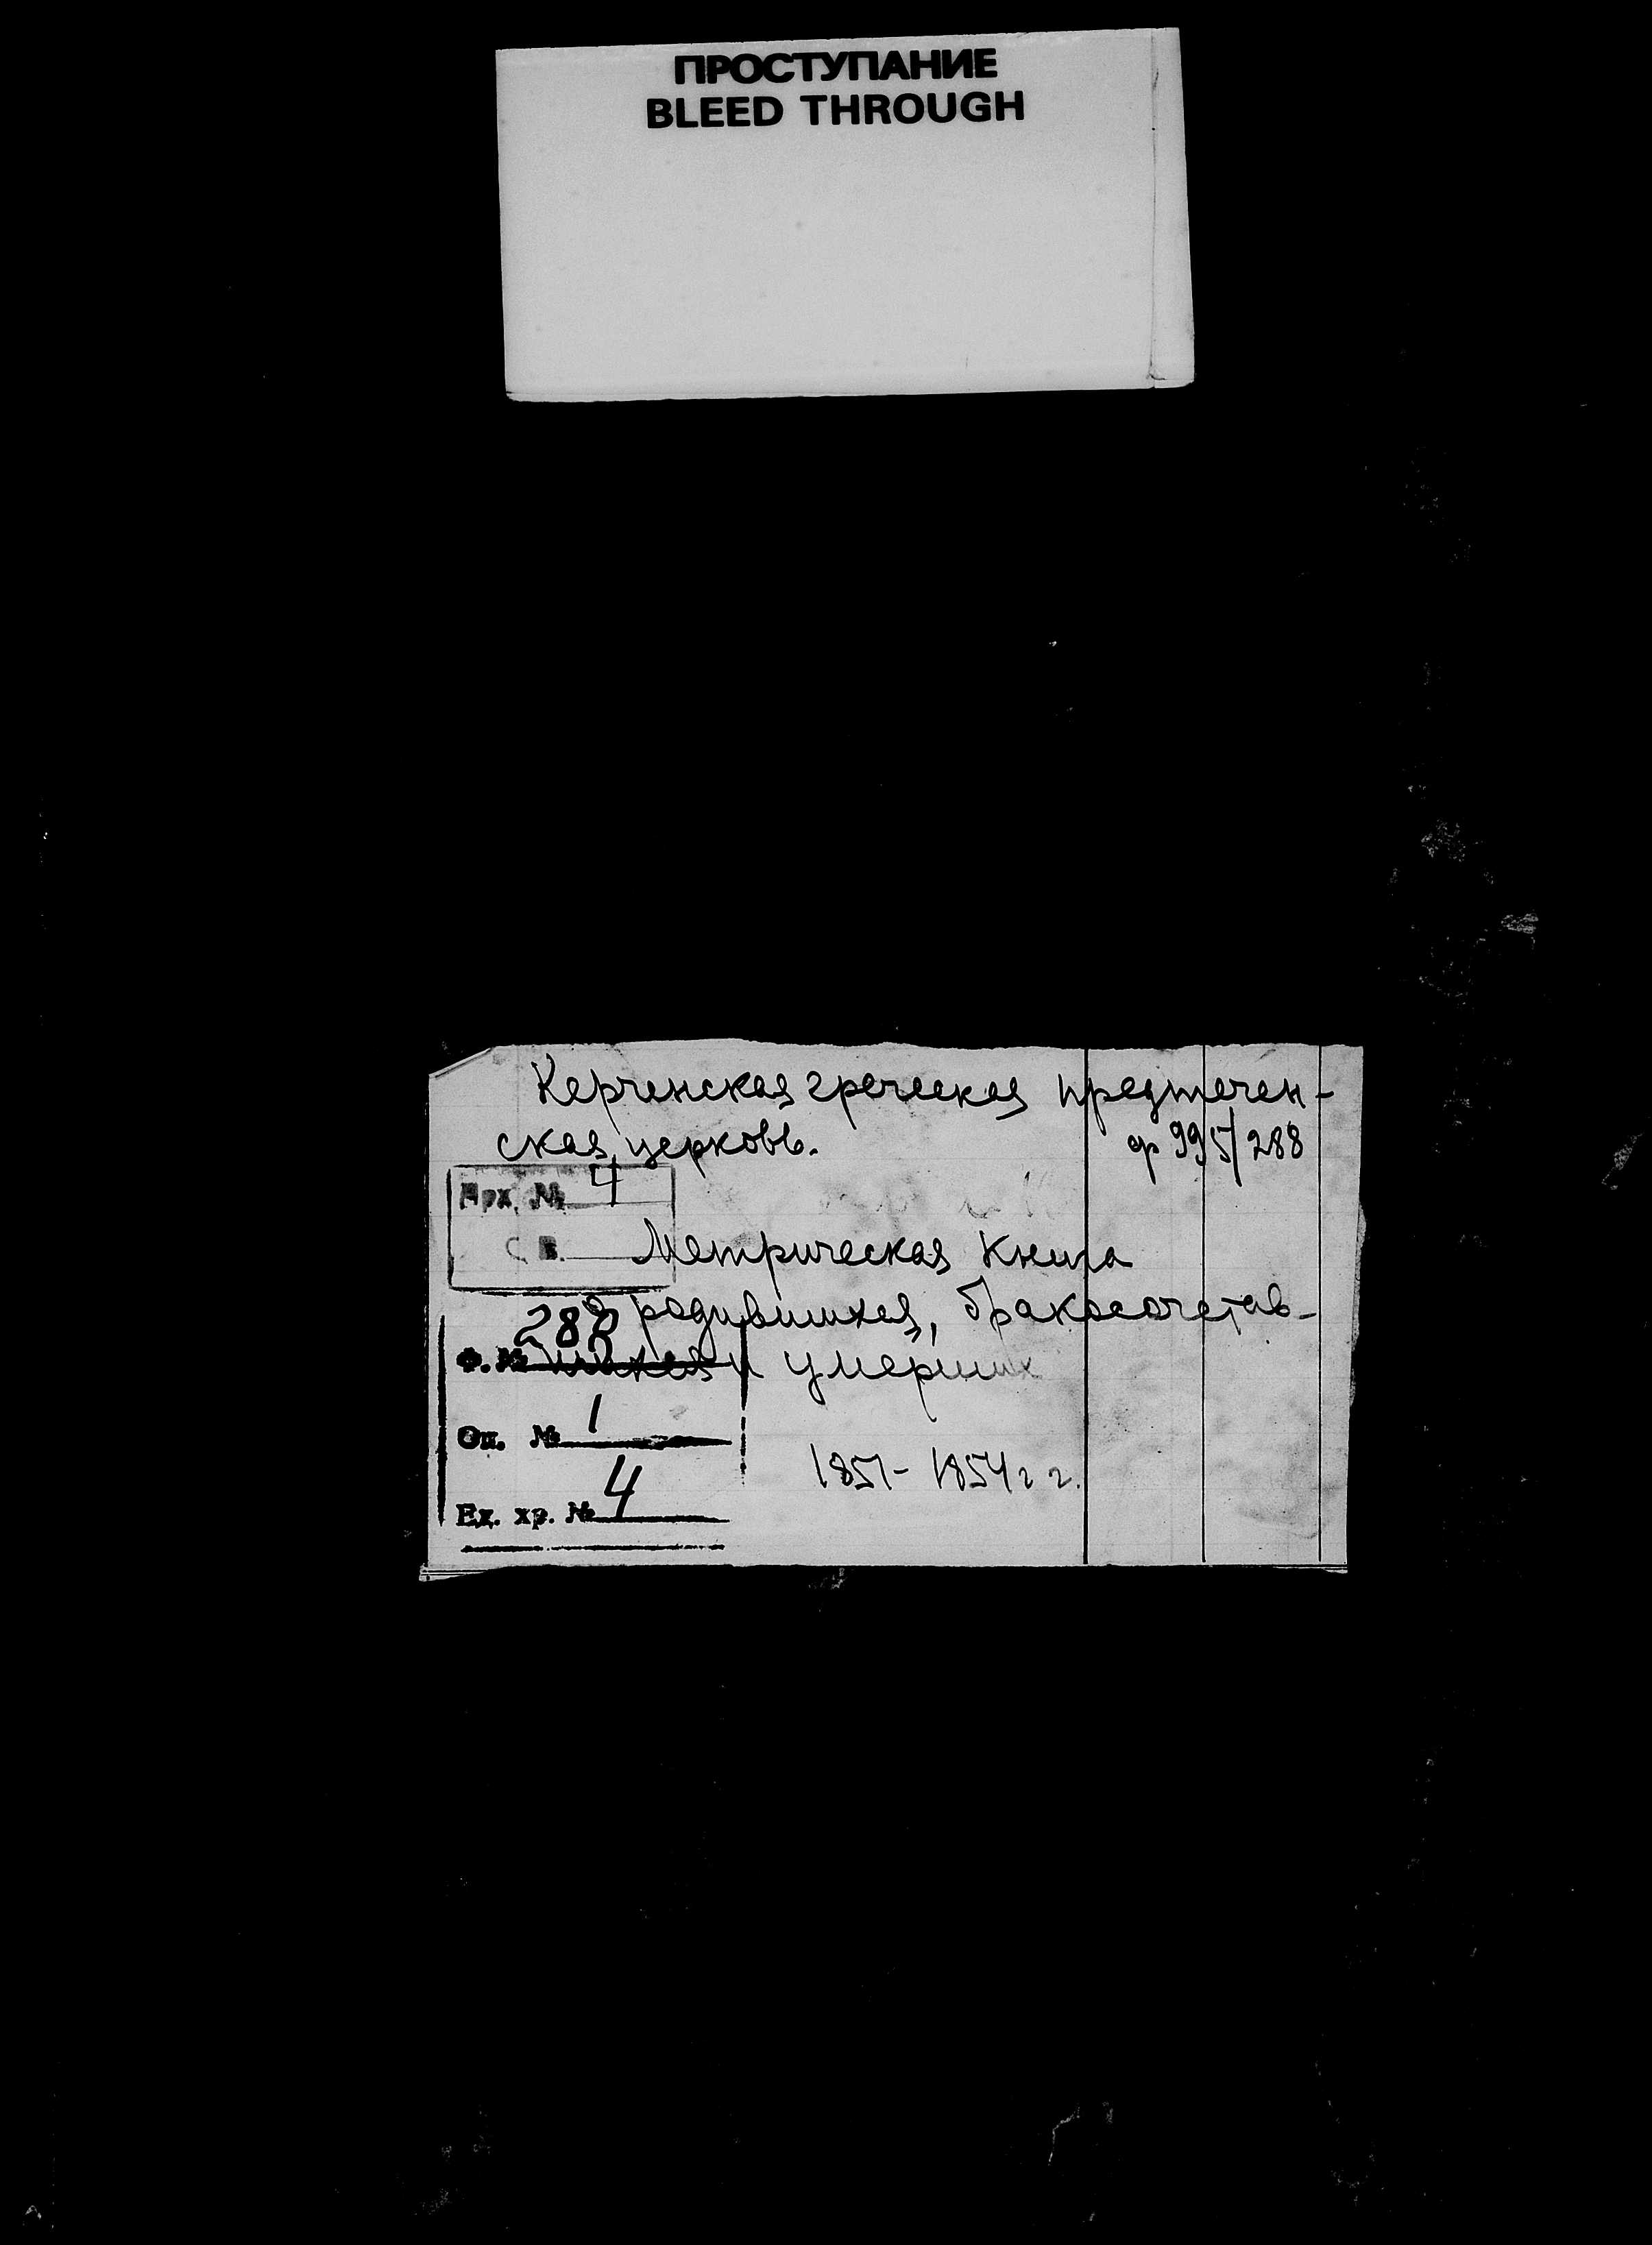 ПРОСТУПАНИЕ
BLEED THROUGH
Керченская греческая предтечен-
ская церковь. ф 995/288
Арх. № 4
С. В.
Метрическая книга
о родившихся, бракосочетав-
шихся и умерших
Ф. № 288
Оп. № 1
Ед. хр. № 4
1851- 1854 г г.